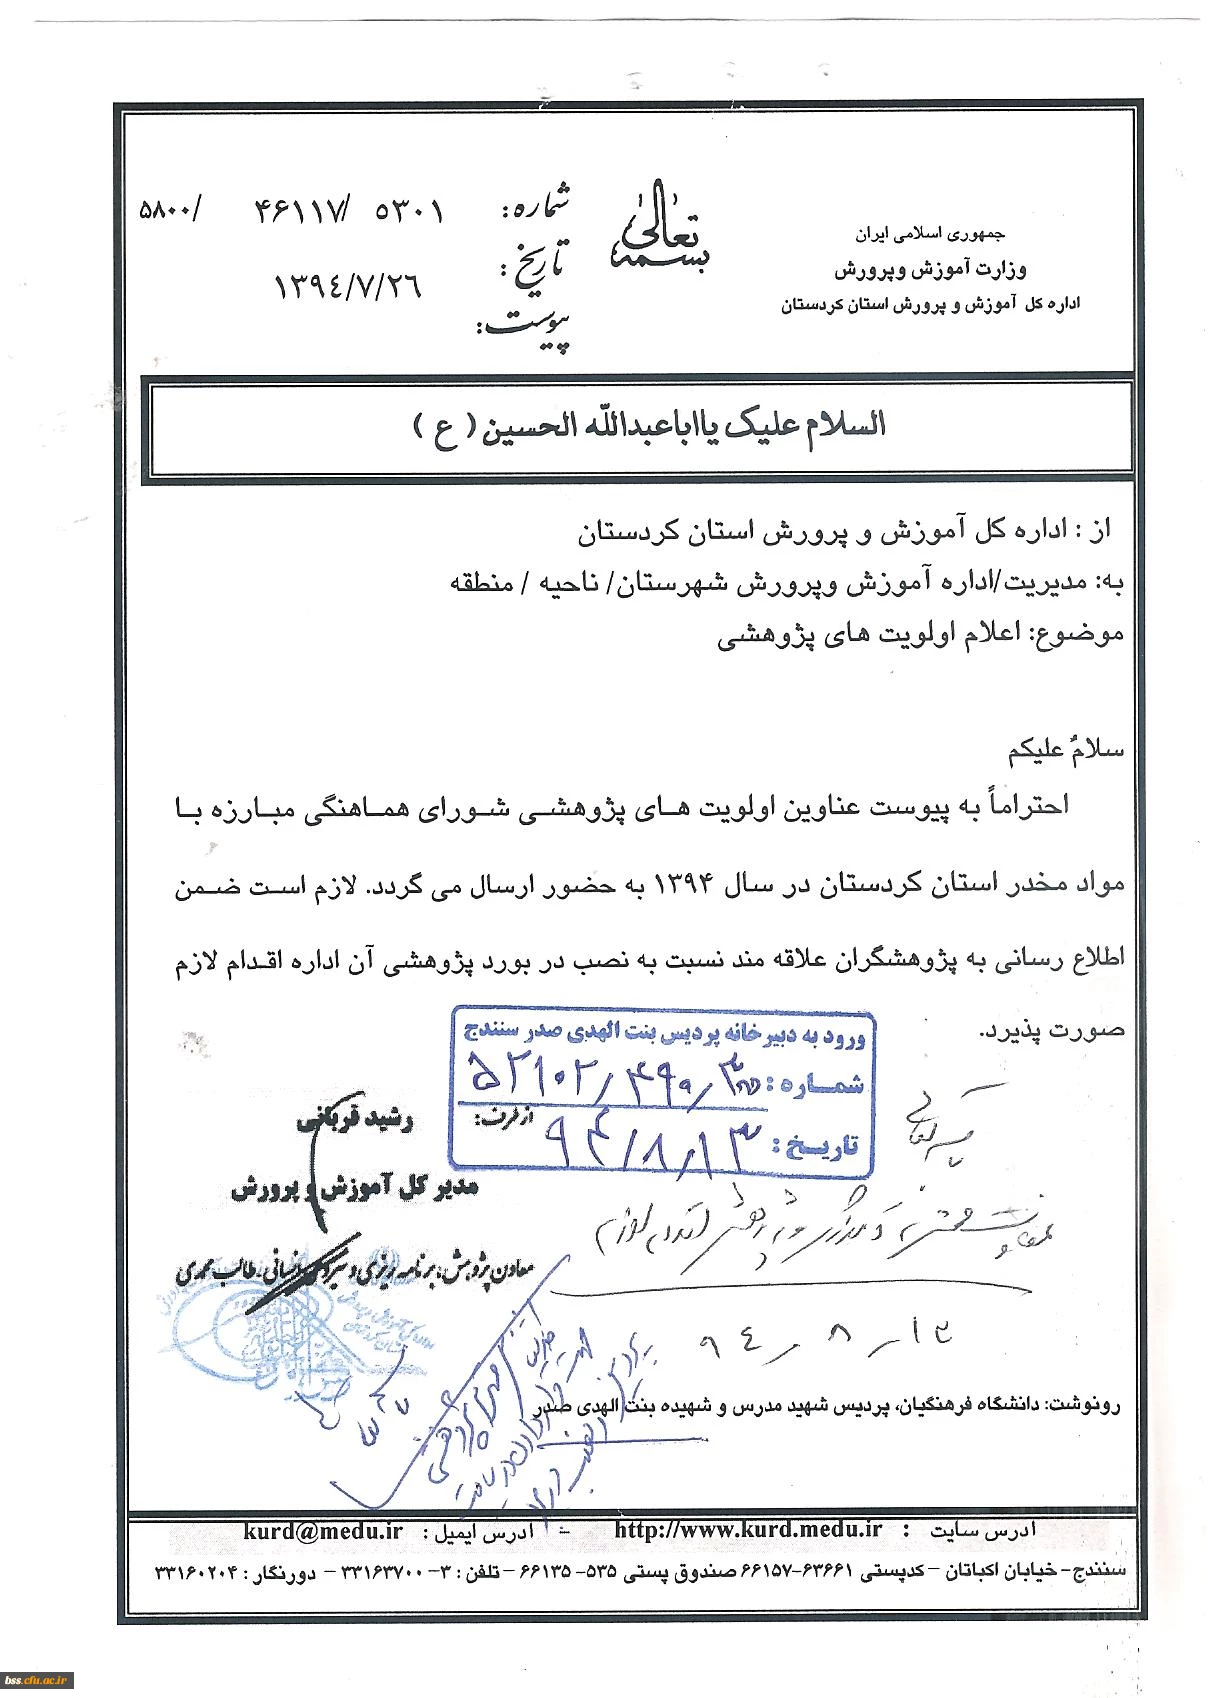 جمهوری اسلامی ایران
وزارت آموزش وپرورش
اداره کل آموزش و پرورش استان کردستان
بسمه تعالی
شماره: ۵۳۰۱ /۴۶۱۱۷ /۵۸۰۰
تاریخ: ۱۳۹٤/۷/۲۶
پیوست:
السلام علیک یااباعبدالله الحسین (ع)
از : اداره کل آموزش و پرورش استان کردستان
به: مدیریت/اداره آموزش وپرورش شهرستان/ ناحیه / منطقه
موضوع: اعلام اولویت های پژوهشی
سلامٌ علیکم
احتراماً به پیوست عناوین اولویت های پژوهشی شورای هماهنگی مبارزه با
مواد مخدر استان کردستان در سال ۱۳۹۴ به حضور ارسال می گردد. لازم است ضمن
اطلاع رسانی به پژوهشگران علاقه مند نسبت به نصب در بورد پژوهشی آن اداره اقدام لازم
صورت پذیرد.
ورود به دبیرخانه پردیس بنت الهدی صدر سنندج
شماره: ۵۲۱۰۲/۴۹۰/
تاریخ: ۹۴/۸/۱۳
از طرف:
رشید قربانی
مدیر کل آموزش و پرورش
معاون پژوهش، برنامه ریزی و نیروی انسانی، طالب محمدی
اقدام لازم
۹٤/۸/۱۳
رونوشت: دانشگاه فرهنگیان، پردیس شهید مدرس و شهیده بنت الهدی صدر
ادرس سایت : http://www.kurd.medu.ir - ادرس ایمیل : kurd@medu.ir
سنندج- خیابان اکباتان - کدپستی ۶۳۶۶۱-۶۶۱۵۷ صندوق پستی ۵۳۵- ۶۶۱۳۵ - تلفن : ۳- ۳۳۱۶۳۷۰۰ - دورنگار : ۳۳۱۶۰۲۰۴
bss.cfu.ac.ir